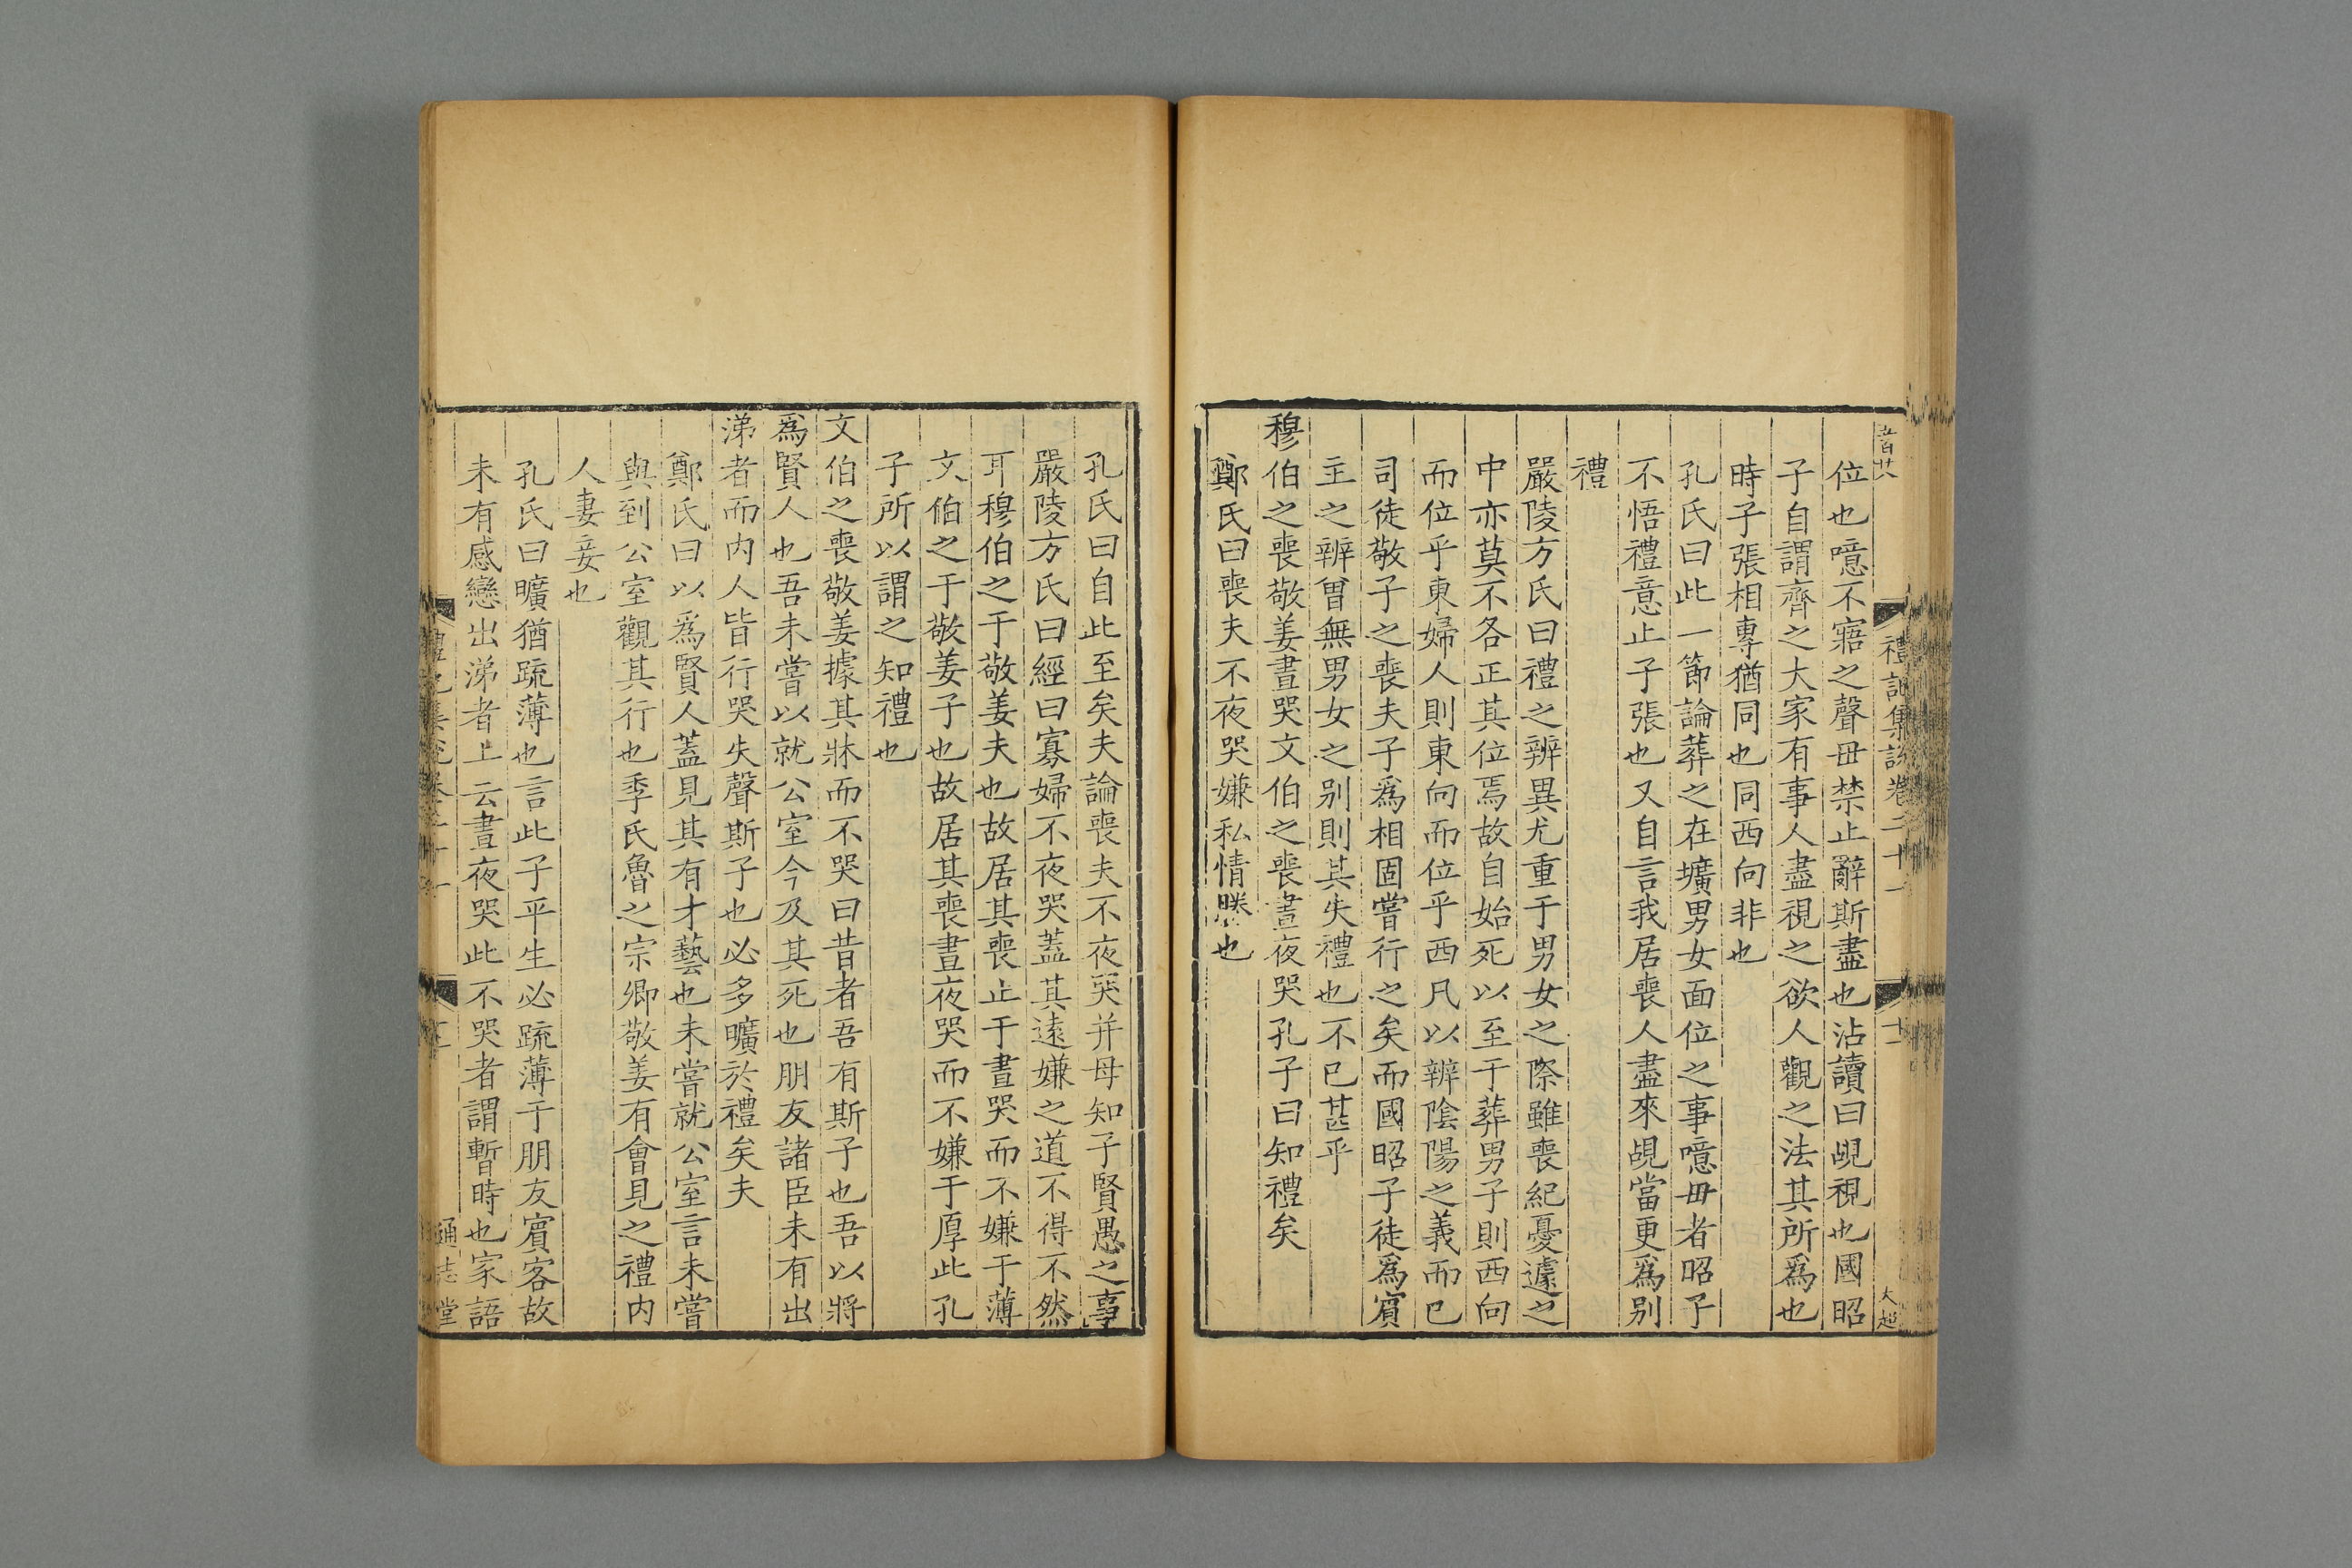 禮記集說卷二十一
大超
位也噫不寤之聲毋禁止辭斯盡也沾讀曰覘視也國昭
子自謂齊之大家有事人盡視之欲人觀之法其所爲也
時子張相專猶同也同西向非也
孔氏曰此一節論葬之在壙男女面位之事噫毋者昭子
不悟禮意止子張也又自言我居喪人盡來覘當更爲别
禮
嚴陵方氏曰禮之辨異尤重于男女之際雖喪紀憂遽之
中亦莫不各正其位焉故自始死以至于葬男子則西向
而位乎東婦人則東向而位乎西凡以辨陰陽之義而已
司徒敬子之喪夫子爲相固嘗行之矣而國昭子徒爲賔
主之辨曾無男女之别則其失禮也不已甚乎
穆伯之喪敬姜晝哭文伯之喪晝夜哭孔子曰知禮矣
鄭氏曰喪夫不夜哭嫌私情勝也
孔氏曰自此至矣夫論喪夫不夜哭并母知子賢愚之事
嚴陵方氏曰經曰寡婦不夜哭蓋其遠嫌之道不得不然
耳穆伯之于敬姜夫也故居其喪止于晝哭而不嫌于薄
文伯之于敬姜子也故居其喪晝夜哭而不嫌于厚此孔
子所以謂之知禮也
文伯之喪敬姜據其牀而不哭曰昔者吾有斯子也吾以將
爲賢人也吾未嘗以就公室今及其死也朋友諸臣未有出
涕者而内人皆行哭失聲斯子也必多曠於禮矣夫
鄭氏曰以爲賢人蓋見其有才藝也未嘗就公室言未嘗
與到公室觀其行也季氏魯之宗卿敬姜有會見之禮内
人妻妾也
孔氏曰曠猶疏薄也言此子平生必疏薄于朋友賔客故
未有感戀出涕者上云晝夜哭此不哭者謂暫時也家語
通志堂